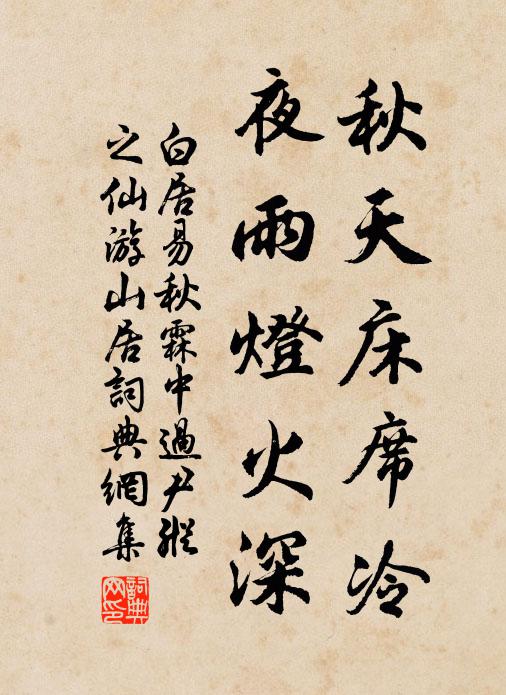 秋天床席冷
夜雨燈火深
白居易秋霖中過尹縱
之仙游山居詞典網集
詞典
网印